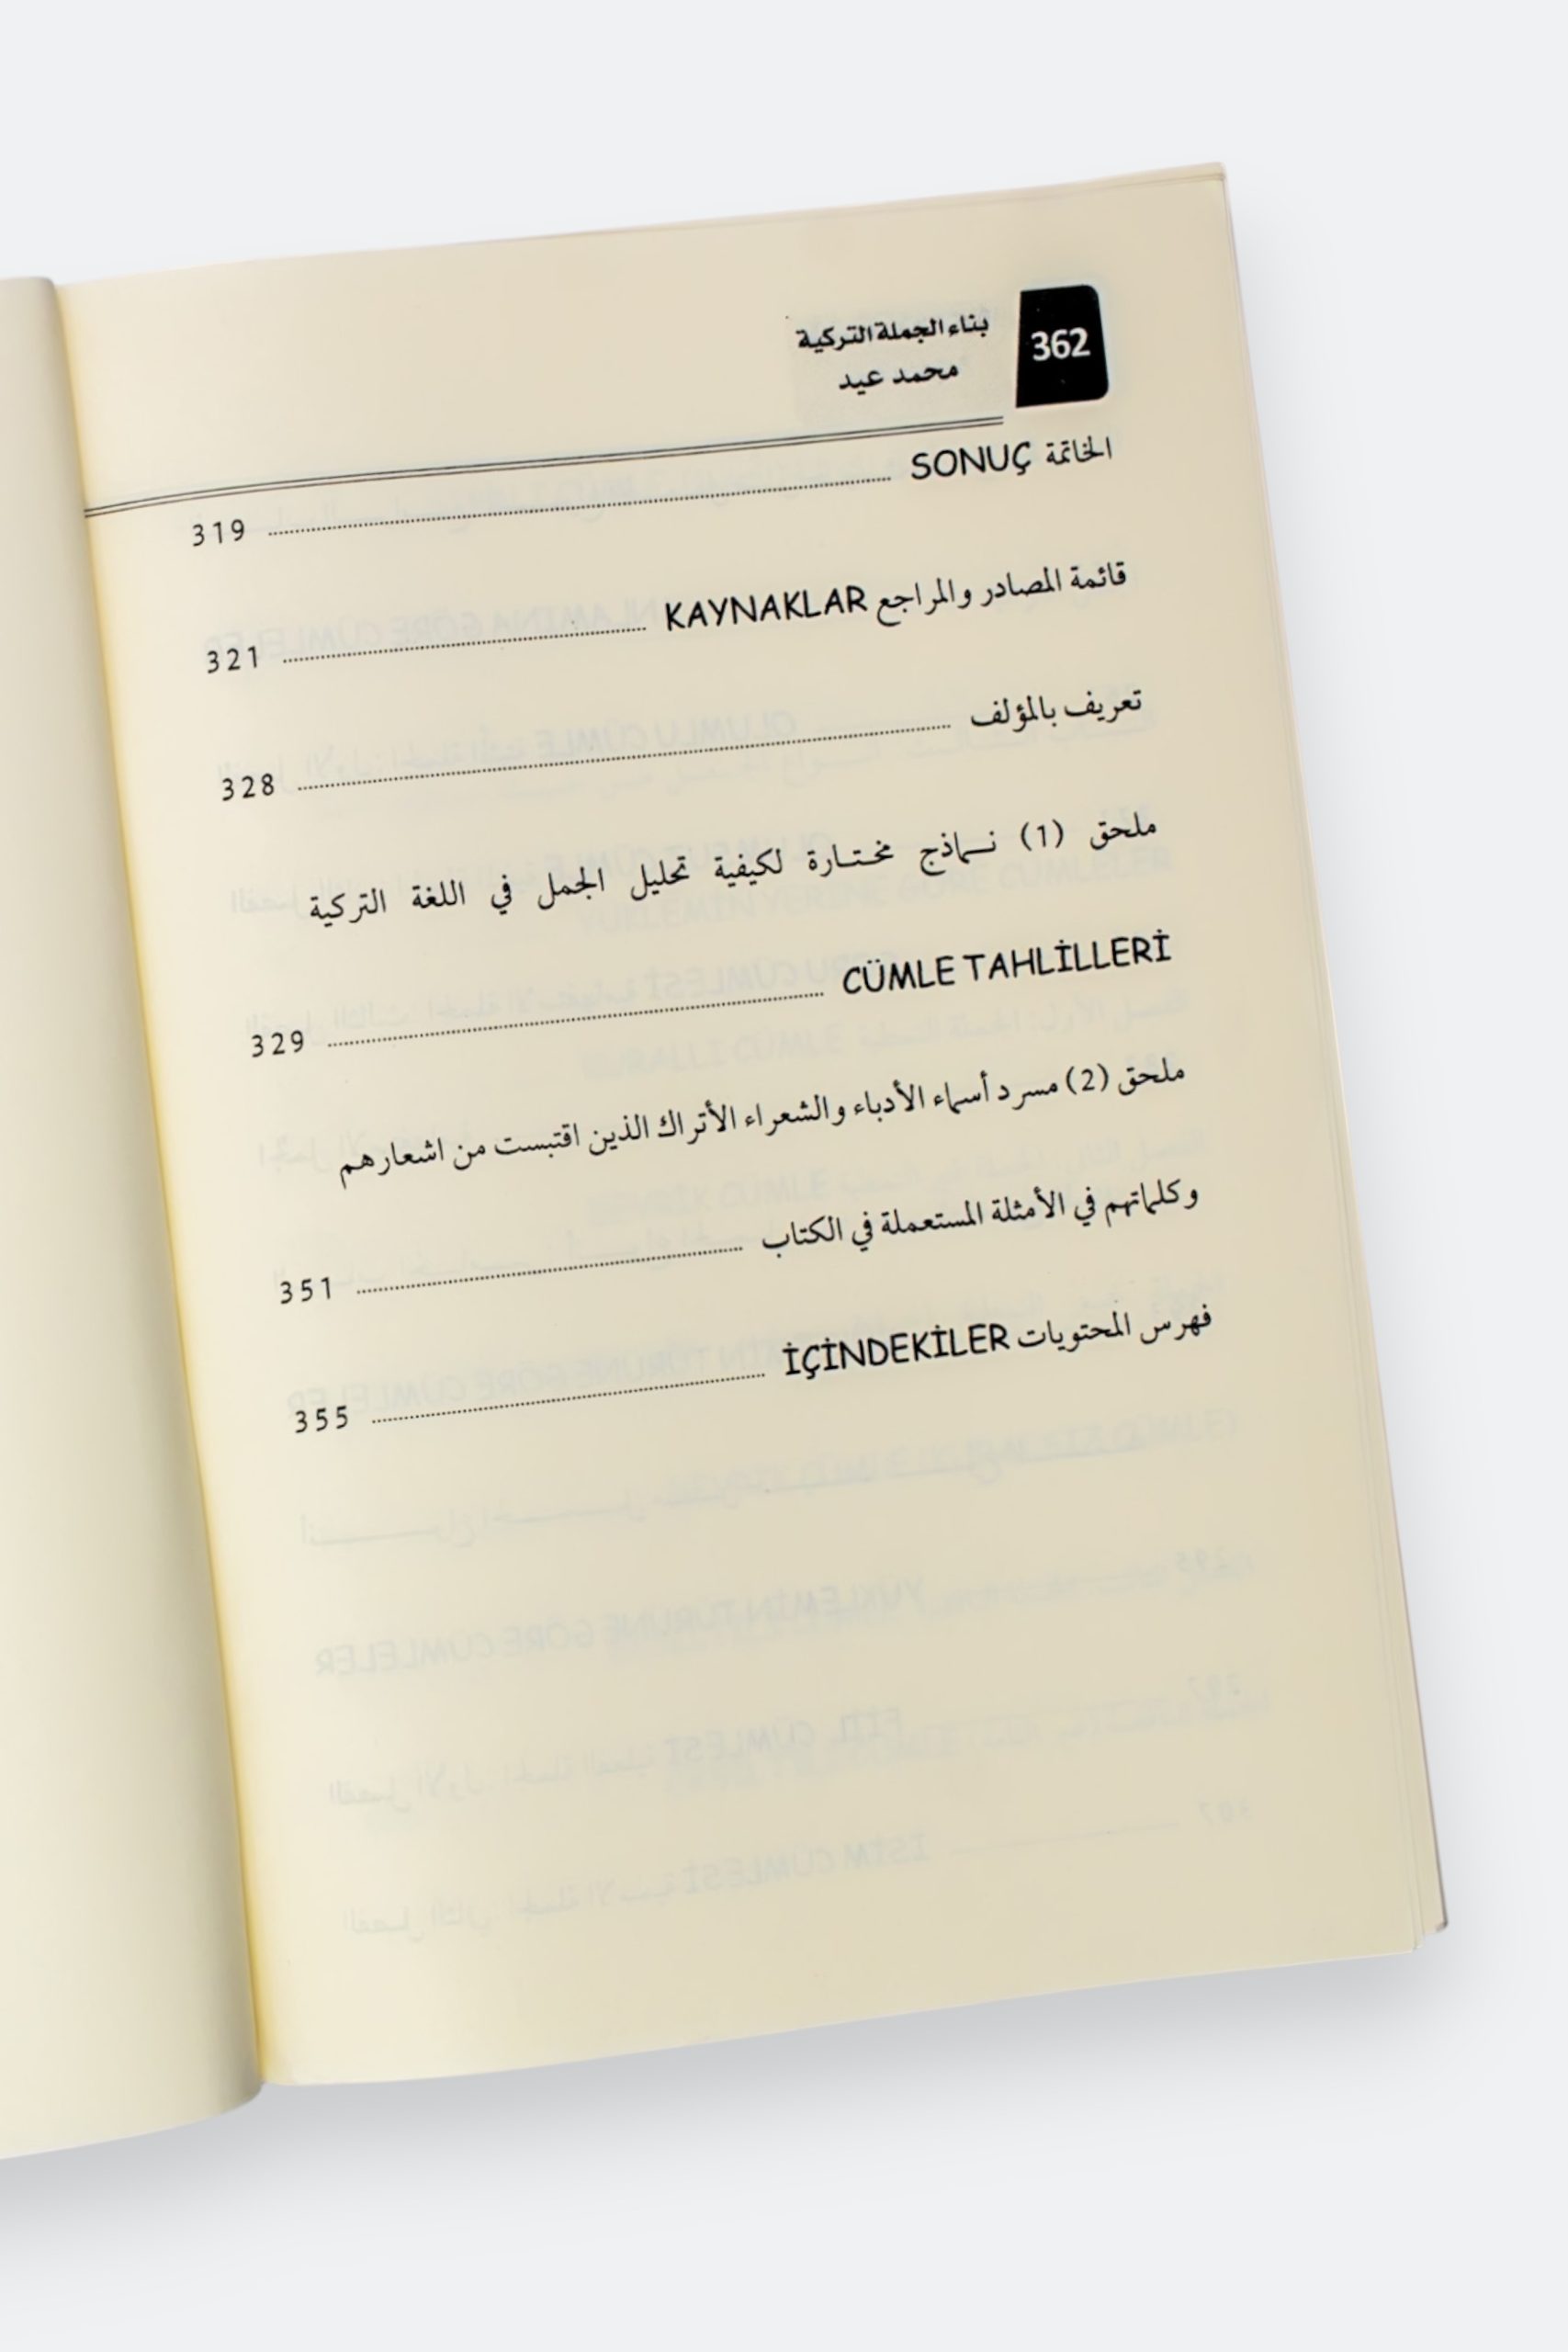 362
بناء الجملة التركية
محمد عيد
الخاتمة SONUÇ ........ 319
قائمة المصادر والمراجع KAYNAKLAR ........ 321
تعريف بالمؤلف ........ 328
ملحق (1) نماذج مختارة لكيفية تحليل الجمل في اللغة التركية
CÜMLE TAHLİLLERİ ........ 329
ملحق (2) مسرد أسماء الأدباء والشعراء الأتراك الذين اقتبست من اشعارهم
وكلماتهم في الأمثلة المستعملة في الكتاب ........ 351
فهرس المحتويات İÇİNDEKİLER ........ 355